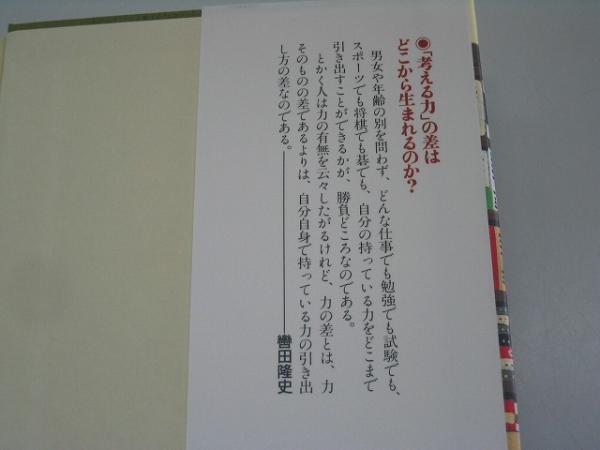 ◉「考える力」の差は
どこから生まれるのか？
男女や年齢の別を問わず、どんな仕事でも勉強でも試験でも、
スポーツでも将棋でも碁でも、自分の持っている力をどこまで
引き出すことができるかが、勝負どころなのである。
とかく人は力の有無を云々したがるけれど、力の差とは、力
そのものの差であるよりは、自分自身で持っている力の引き出
し方の差なのである。――轡田隆史